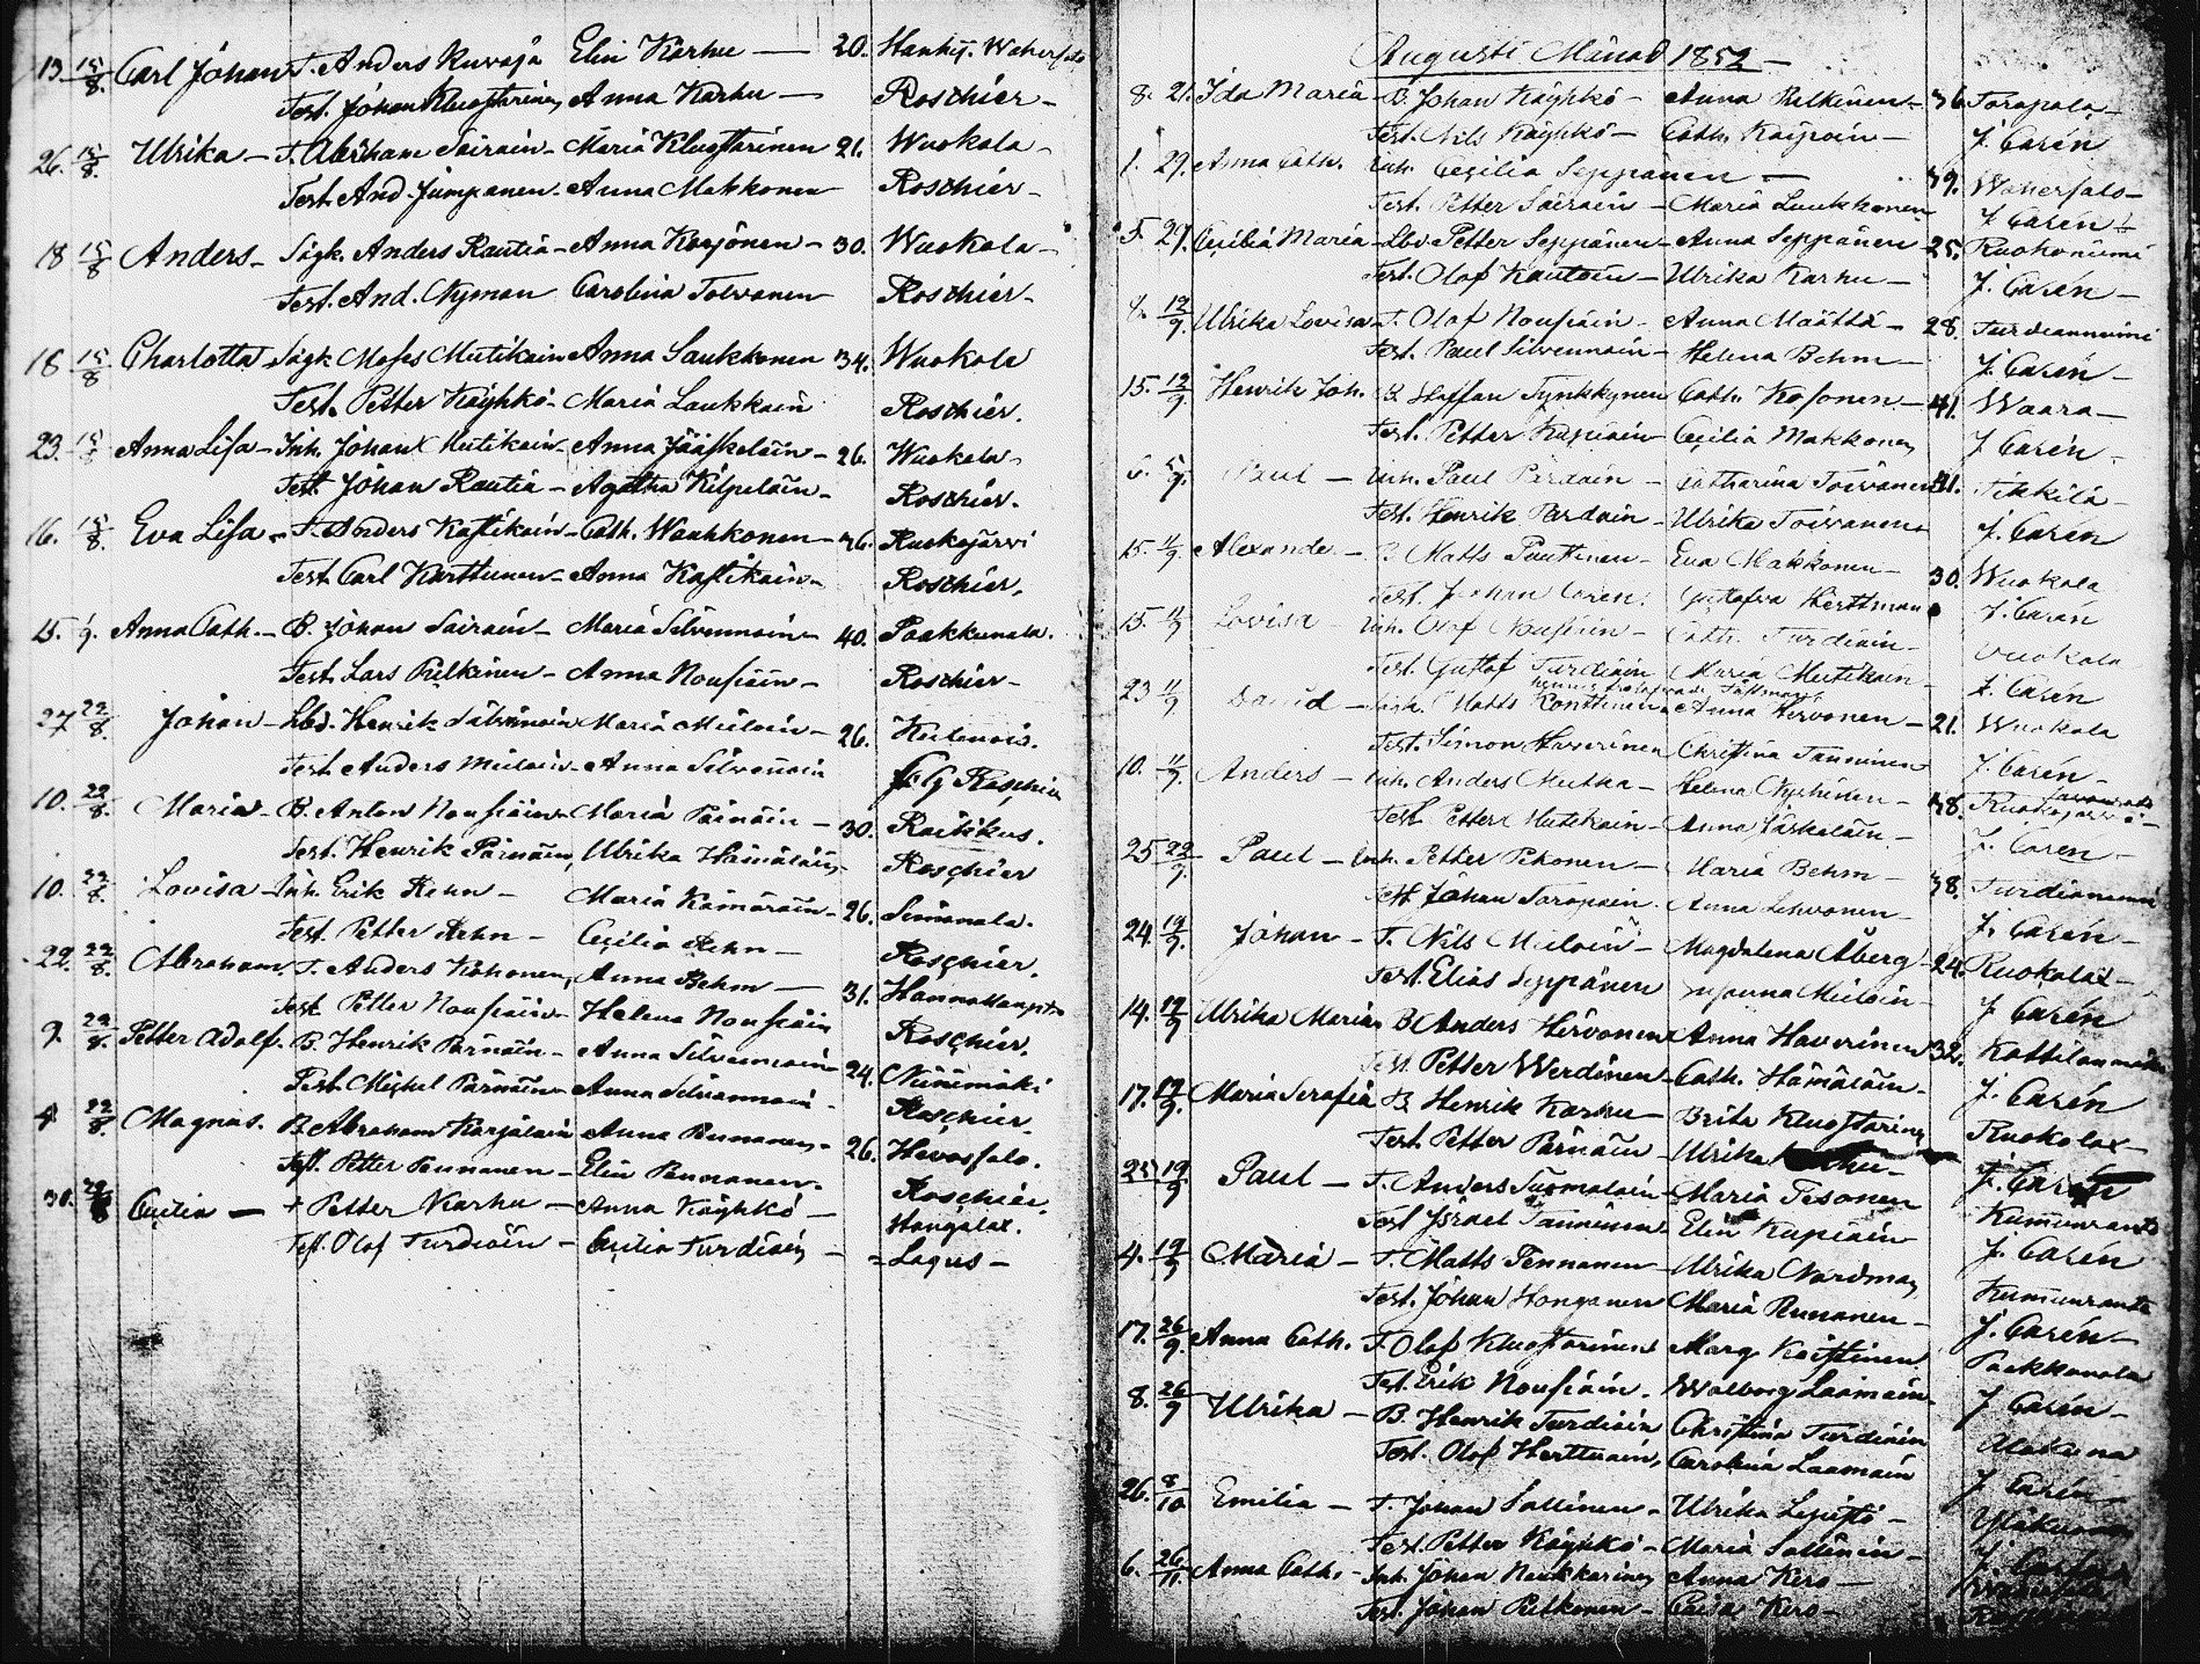 13. 15/8. Carl Johan T. Anders Kuvaja Elin Karhu — 20. Hankij. Wahersalo
Test. Johan Klugstarinen Anna Karhu — Roschier –
26. 15/8. Ulrika – T. Abraham Sairain – Maria Klugstarinen 21. Wuokala –
Test. And. Jumpanen – Anna Makkonen Roschier –
18 15/8 Anders – Sågk. Anders Rautia – Anna Korjonen – 30. Wuokala –
Test. And. Nyman Carolina Tolvanen Roschier –
18 15/8 Charlotta Sågk Moses Mutikain Anna Laukkonen 34. Wuokala
Test. Petter Käyhkö – Maria Laukkain Roschier.
23. 15/8 Anna Lisa – Inh. Johan Mutikain – Anna Jääskeläin – 26. Wuokala –
Test Johan Rautia – Agatha Kilpeläin – Roschier.
16. 15/8. Eva Lisa – T. Anders Kastikain – Cath. Wauhkonen – 36. Ruokojärvi
Test Carl Karttunen – Anna Kastikain – Roschier.
15. 1/9. Anna Cath. – B. Johan Sairain – Maria Silvennoin – 40. Paakkunala.
Test Lars Pulkinen – Anna Nousiäin – Roschier –
27 22/8. Johan – Lbd. Henrik Maria Muiloin – 26.
Test Anders Muiloin – Anna Silvennoin Roschier
10. 22/8. Maria – B. Anton Nousiäin – Maria Pärnäin – 30. Raikikus.
Test. Henrik Pärnäin, Ulrika Hämäläin – Roschier
10. 22/8. Lovisa – Inh. Erik Rehn – Maria Kämäräin – 26. Simanala.
Test. Petter Rehn – Cecilia Rehn – Roschier.
22. 22/8. Abraham. T. Anders Kohonen, Anna Behm — 31.
Test Petter Nousiäin – Helena Nousiäin Roschier.
9. 22/8. Petter Adolf. B. Henrik Pärnäin – Anna Silvennoin 24. Niinimäki
Test. Michel Pärnäin – Anna Silvennoin – Roschier.
4 22/8. Magnus. B. Abraham Karjalain Anna Pennanen – 26. Hevossalo.
Test. Petter Pennanen – Elin Pennanen – Roschier.
30. Cecilia — + Petter Karhu — Anna Käyhkö — Haugalax.
Test. Olof Turdiäin – Cecilia Turdiäin – = Lagus –
Augusti Månad 1852 –
8. 21. Ida Maria – B. Johan Käyhkö – Anna Pulkinen – 36. Torapala –
Test. Nils Käyhkö – Cath. J. Carén
1. 29. Anna Cath. Inh. Cecilia Seppänen — 39. Wahersalo –
Test. Petter Sairain – Maria Laukkonen J. Carén –
5. 29. Cecilia Maria – Lbd. Petter Seppänen – Anna Seppänen 25. Ruokoniemi
Test. Olof Kautoin – Ulrika Karhu – J. Carén –
8. 12/9. Ulrika Lovisa – T. Olof Nousiäin – Anna Määttä – 28. Turdianniemi
Test. Paul Silvennoin – Helena Behm – J. Carén –
15. 12/9. Henrik Joh. B. Staffan Tynkkynen Cath. Kosonen – 41. Waara –
Test. Petter Kupiain Cecilia Makkonen J. Carén –
6. 5/9. Paul – Inh. Paul Pardain – Catharina Toivanen 31. Tikkilä –
Test. Henrik Pardain – Ulrika Toivanen – J. Carén
15. 11/9. Alexander – B. Matts Puttinen – Eva Makkonen – 30. Wuokala
Test. Johan Carén. Gustafva Herttman J. Carén
15. 11/9 Lovisa – Inh. Olof Nousiäin – Cath. Turdiain – Wuokala
Test. Gustaf Turdiäin Maria Mutikain – J. Carén
23 11/9 David – Inh. Matts Konttinen – Anna Hirvonen – 21. Wuokala
Test. Simon Haverinen Christina Tanninen J. Carén –
10. 11/9. Anders – Inh. Anders Mutka – Helena Nykänen – 38. Ruokojärvi –
Test. Petter Mutikain – Anna Jäskeläin – J. Carén –
25 22/9. Paul – Inh. Petter Pekonen – Maria Behm – 38. Turdianniemi
Test Johan Torapain – Anna Lehvonen – J. Carén –
24. 19/9. Johan – T. Nils Muiloin – Magdalena Åberg – 24. Ruokolax –
Test. Elias Seppänen Muiloin – J. Carén
14. 19/9 Ulrika Maria B. Anders Hirvonen Anna Haverinen 32. Kattilanmäki
Test Petter Werdinen – Cath. Hämäläin – J. Carén
17. 19/9. Maria Serafia B. Henrik Karhu – Brita Klugstarinen Ruokolax –
Test. Petter Pärnäin – Ulrika J. Carén
25 19/9 Paul – T. Anders Suomalain – Maria Pesonen Kummunranta
Test Israel Tanninen – Elin Kupiäin J. Carén
4. 19/9 Maria – T. Matts Pennanen – Ulrika Nordman Kummunranta
Test. Johan Honganen Maria Runanen – J. Carén –
17. 26/9. Anna Cath. T. Olof Klugstarinen Marg. Koistinen Paakkunala
Test. Erik Nousiäin. Walborg Laamain – J. Carén –
8. 26/9 Ulrika – B. Henrik Turdiäin Christina Turdiäin Alakuna
Test. Olof Herttuain, Carolina Laamain J. Carén –
26. 8/10 Emilia – T. Johan Sallinen – Ulrika Lepistö –
Test. Petter Käyhkö – Maria Sallinen – J.
6. 26/11. Anna Cath. – Inh. Johan Naukkarinen Anna Kero –
Test. Johan Pulkonen – Caisa Kero –